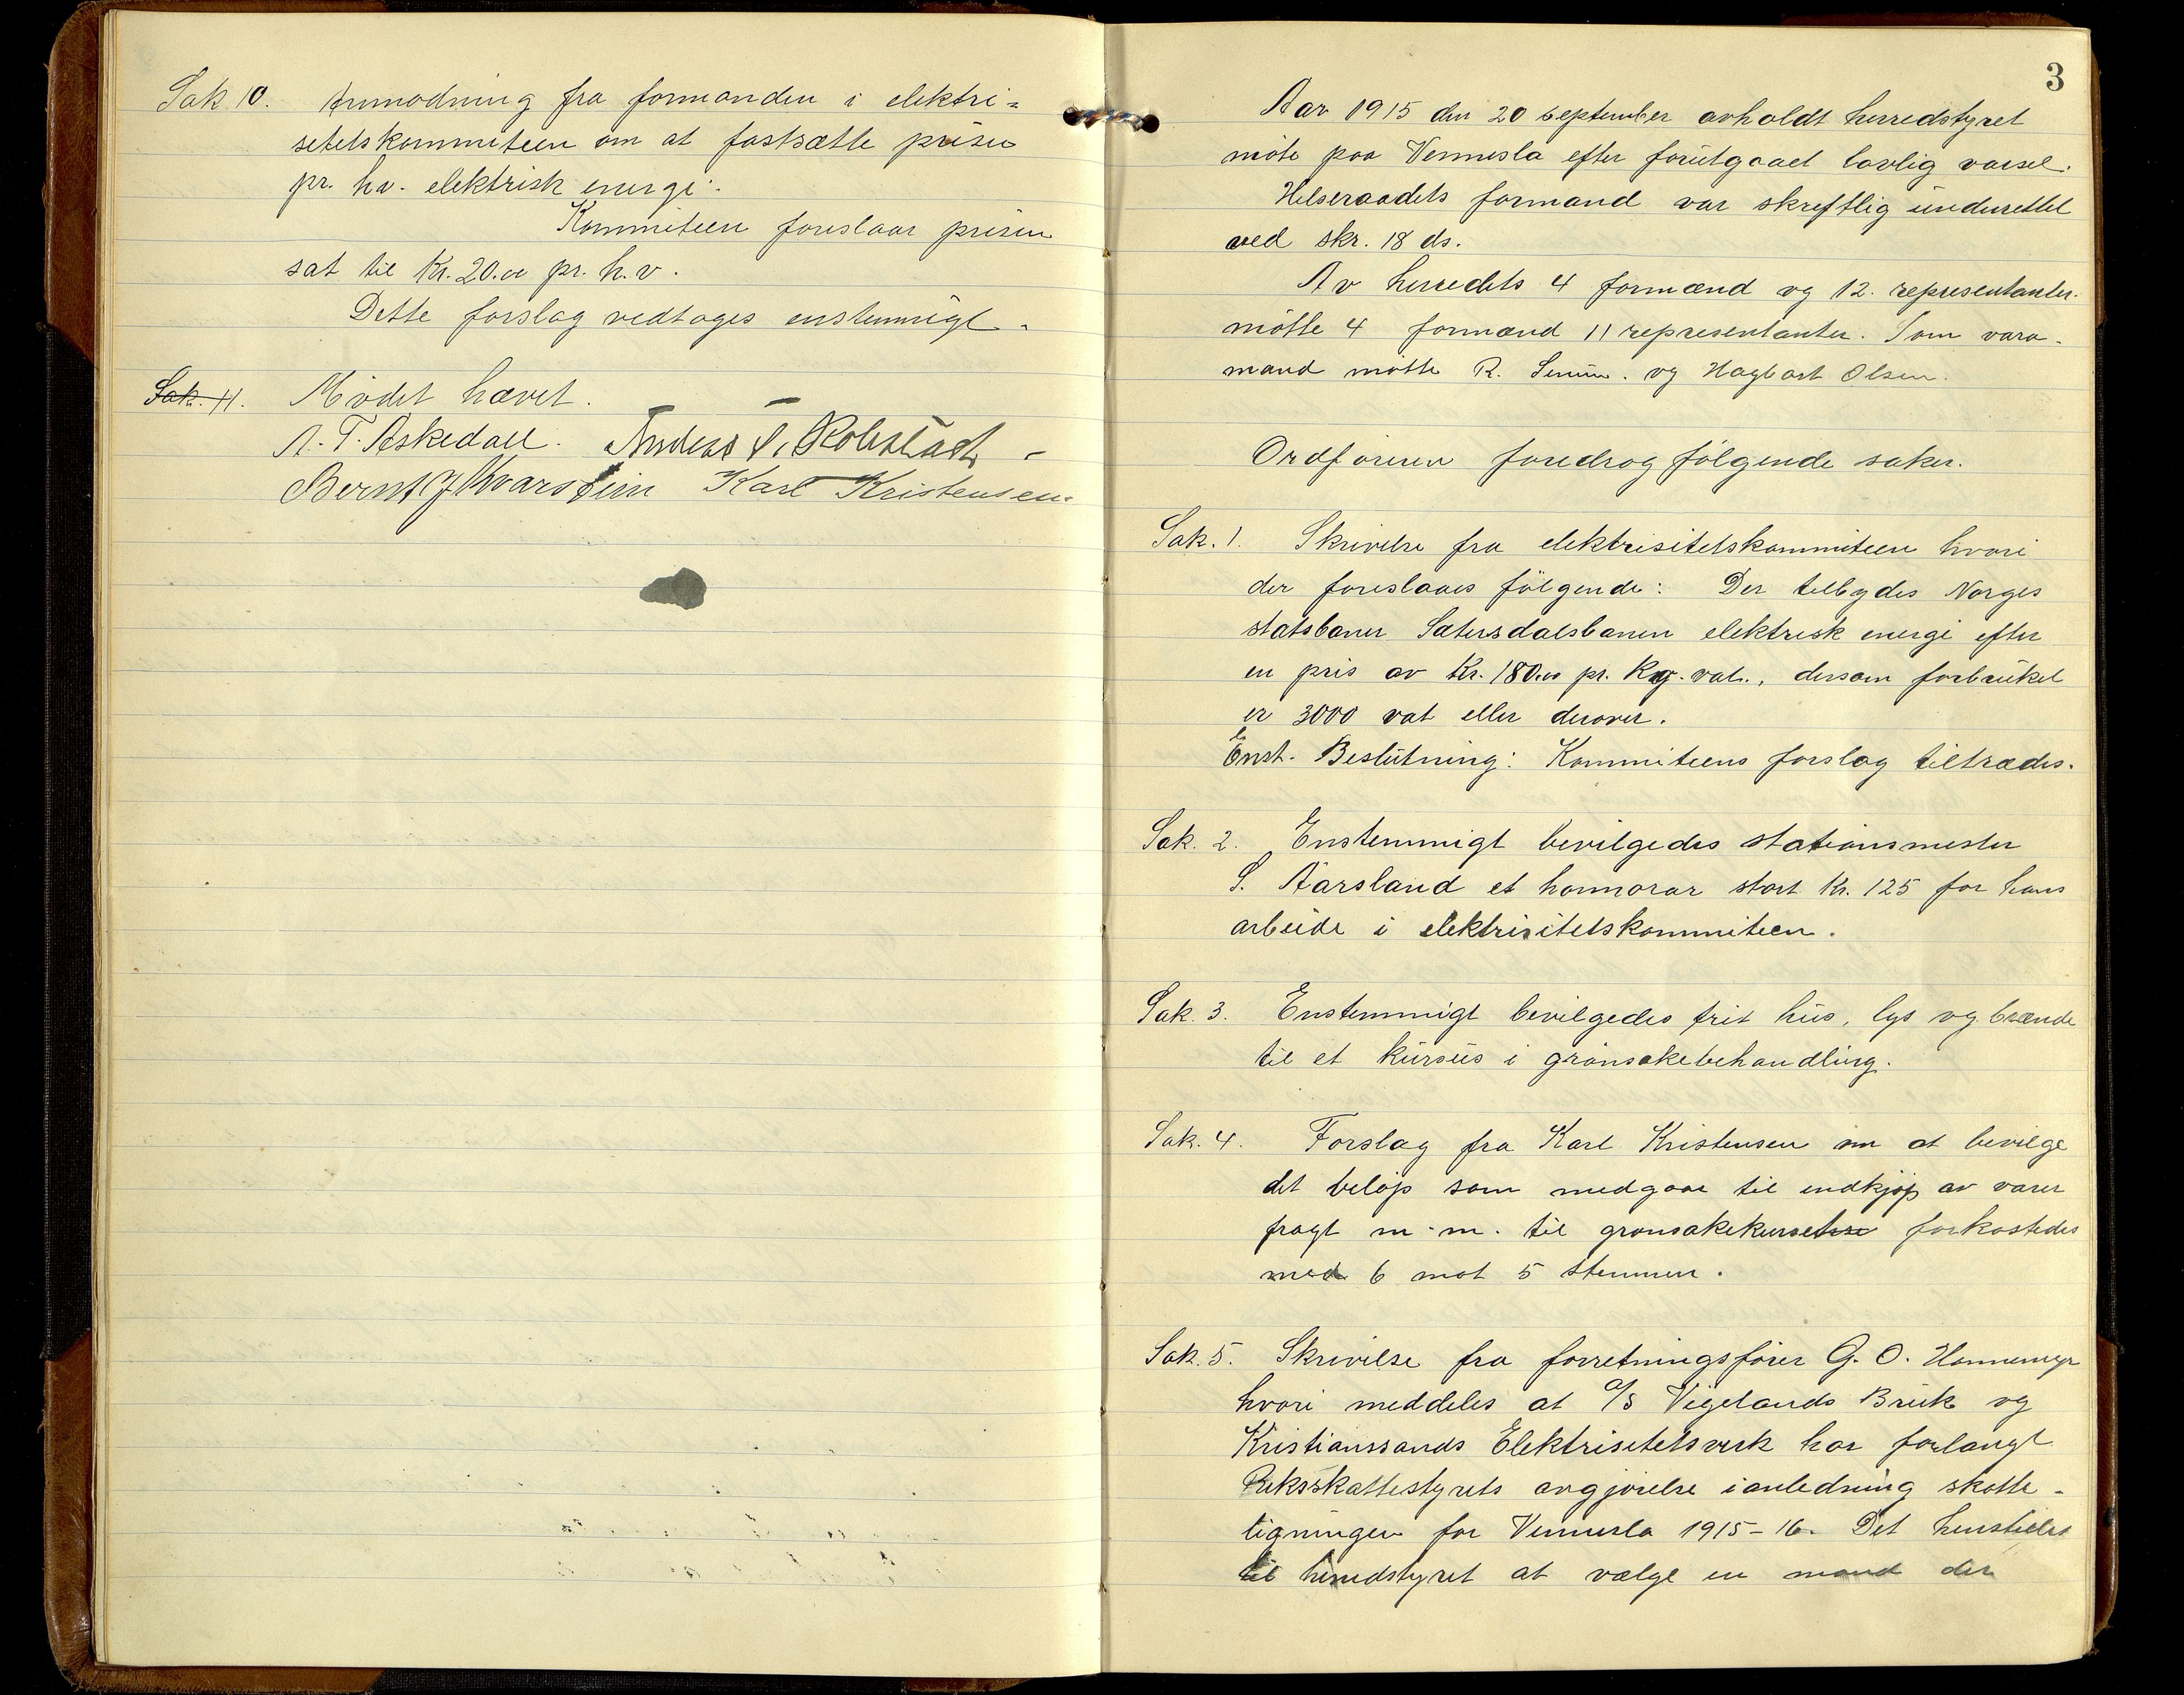 Sak 10. Anmodning fra formanden i elektri=
setetskommiteen om at fastsætte prisen
pr. hv. elektrisk energi.
Kommiteen foreslaar prisen
sat til Kr. 20.00 pr. h.v.
Dette forslag vedtoges enstemmigt.
Sak. 11. Mödet hævet.
A. T. Askedall. Anders T. Robstad
Bernt J Kvarstein Karl Kristensen.
3
Aar 1915 den 20 september avholdt herredstyret
möte paa Vennesla efter forutgaaet lovlig varsel.
Helseraadets formand var skreftlig underettet
ved skr. 18 ds.
Av herredets 4 formænd og 12. representanter.
mötte 4 formænd 11 representanter. Som vara-
mand mötte R. og Hagbart Olsen.
Ordföreren foredrog fölgende saker.
Sak. 1. Skrivelse fra elektrisitetskommiteen hvori
der foreslaaes fölgende: Der tilbydes Norges
statsbaner Sætersdalsbanen elektrisk energi efter
en pris av Kr. 180.00 pr. Kg. vat., dersom forbruket
er 3000 vat eller derover.
Enst. Beslutning: Kommiteens forslag tiltrædes.
Sak. 2. Enstemmigt bevilgedes stationsmester
S. Aarsland et honnorar stort Kr. 125 for hans
arbeide i elektrisitetskommiteen.
Sak. 3. Enstemmigt bevilgedes frit hus, lys og brænde
til et kursus i grönsakebehandling.
Sak. 4. Forslag fra Karl Kristensen om at bevilge
det belöp som medgaar til indkjöp av varer
fragt m.m. til gronsakekurset forkastedes
med 6 mot 5 stemmer.
Sak. 5. Skrivelse fra forretningsförer G. O. Honnemyr
hvori meddeles at A/S Vigelands Bruk og
Kristianssands Elektrisitetsverk har forlangt
Riksskattestyrets avgjörelse ianledning skatte-
ligningen for Vennesla 1915-16. Det henstilles
til herredstyret at vælge en mand der